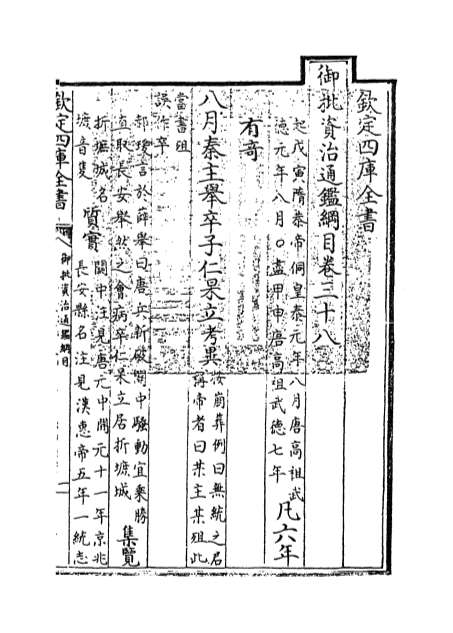 欽定四庫全書
御批資治通鑑綱目卷三十八
起戊寅隋恭帝侗皇泰元年八月唐高祖武
德元年八月○盡甲申唐高祖武德七年
凡六年
有奇
八月秦主舉卒子仁杲立考異
按崩葬例曰無統之君
稱帝者曰某主某殂此
當書殂
誤作卒
郝瑗言於薛舉曰唐兵新破關中騷動宜乘勝
直取長安舉然之會病卒仁杲立居折墌城
集覽
折墌城名
墌音隻
質實
關中注見唐元中開元十一年京兆
長安縣名注見漢惠帝五年一統志
欽定四庫全書
御批資治通鑑綱目